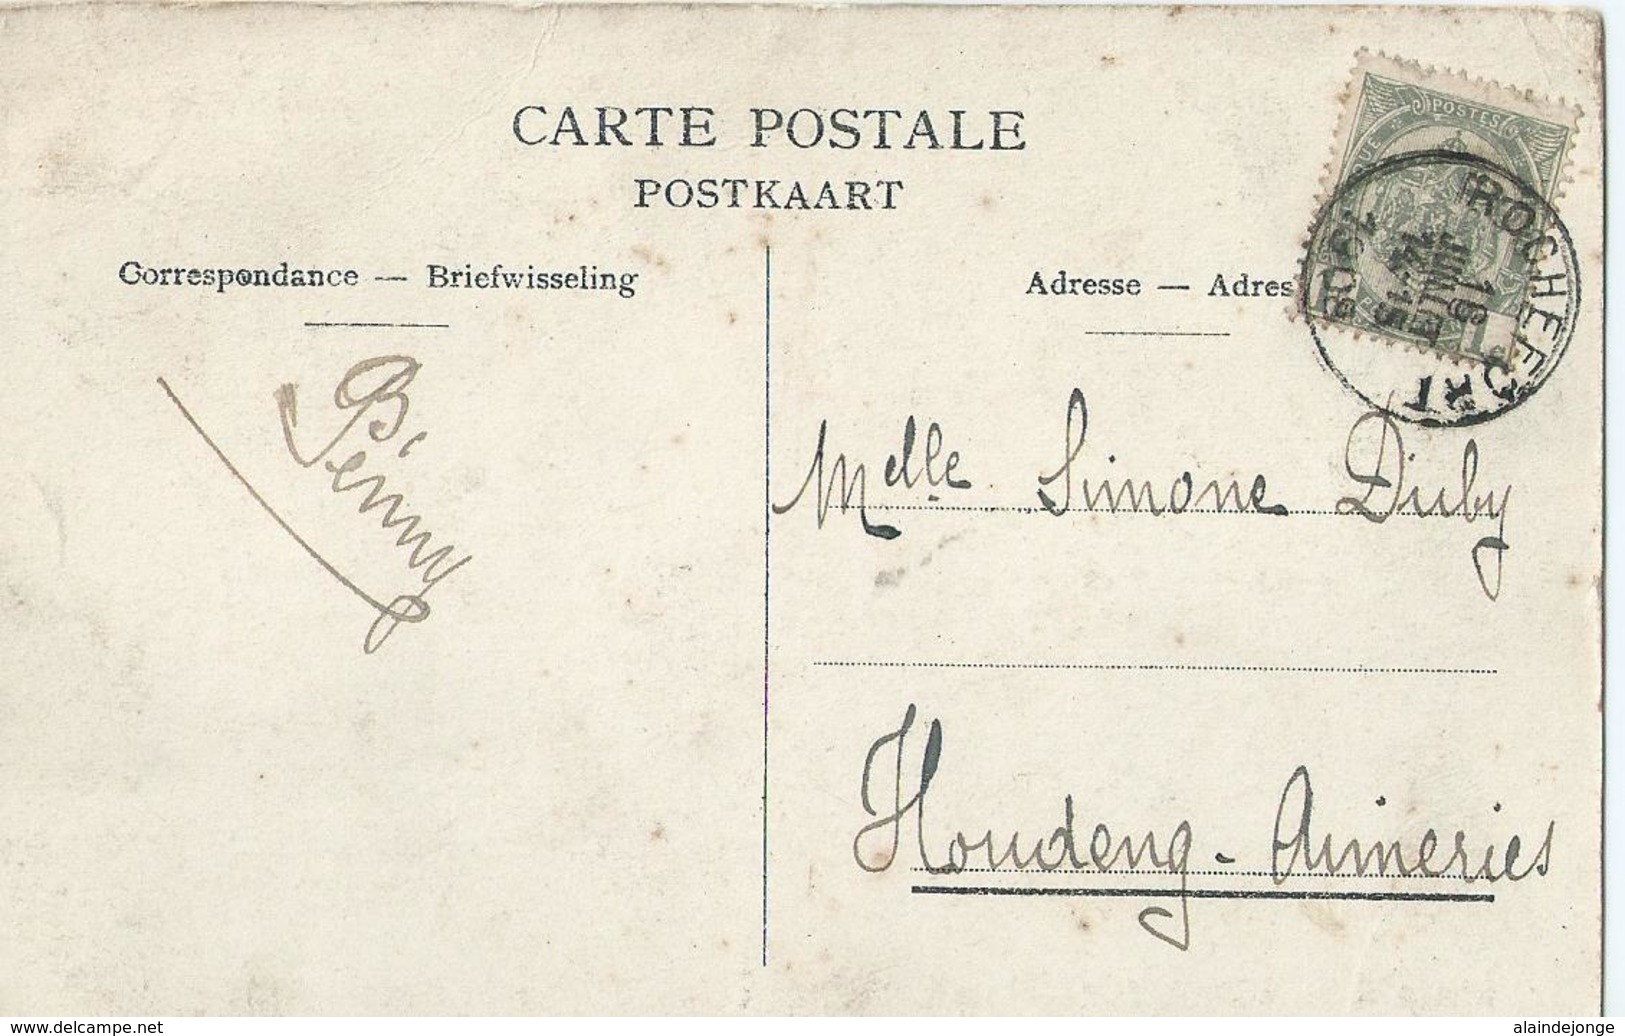 CARTE POSTALE
POSTKAART
Correspondance — Briefwisseling
Adresse — Adres
POSTES
ROCHEFORT
16
JUIN
1908
Melle Simone Duby
Houdeng-Aimeries
www.delcampe.net
alaindejonge